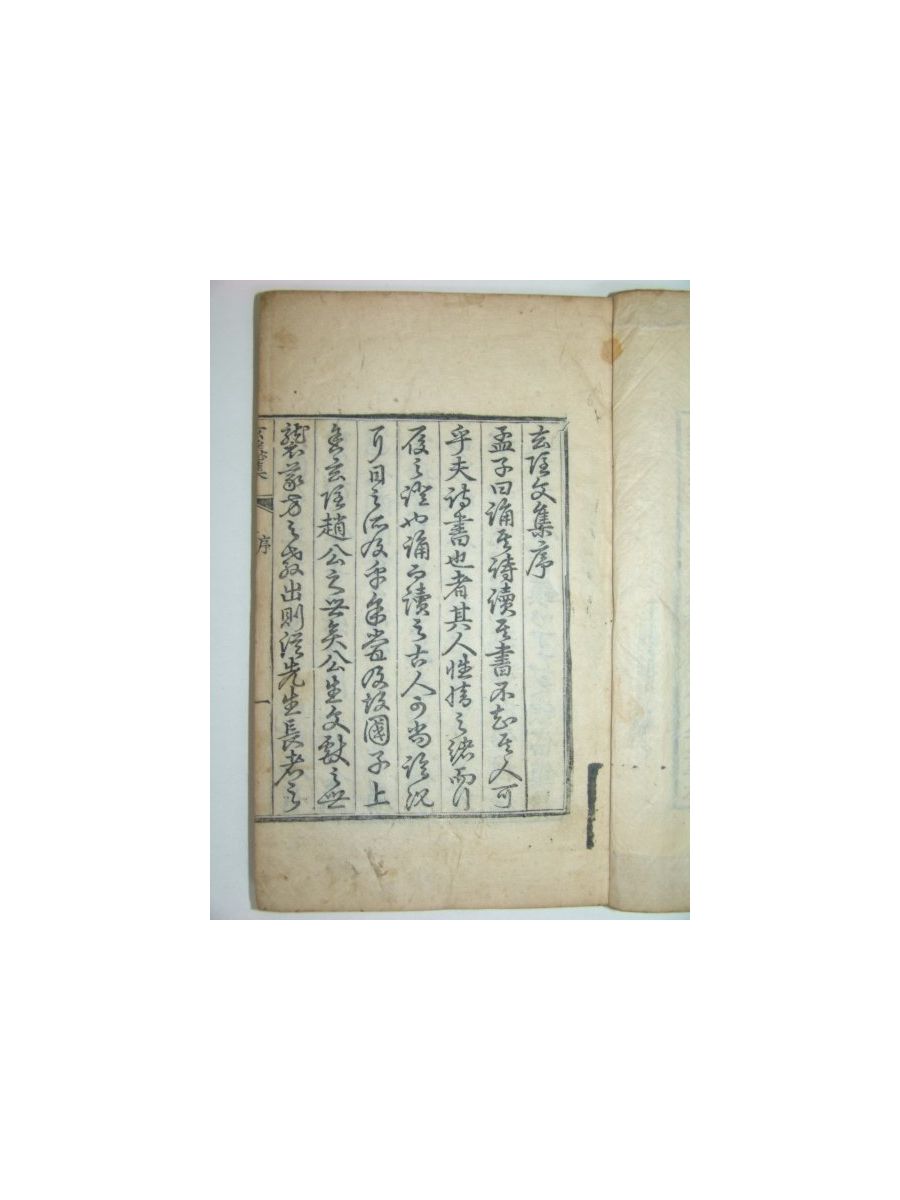 玄文集序
孟子曰誦其詩讀其書不知其人可
乎夫詩書也者其人性情之緒而行
履之證也誦而讀之古人可尚論況
耳目之所及乎余嘗及故國子上
舍玄趙公之世矣公生文獻之世
襲義方之敎出則從先生長者之
序 一